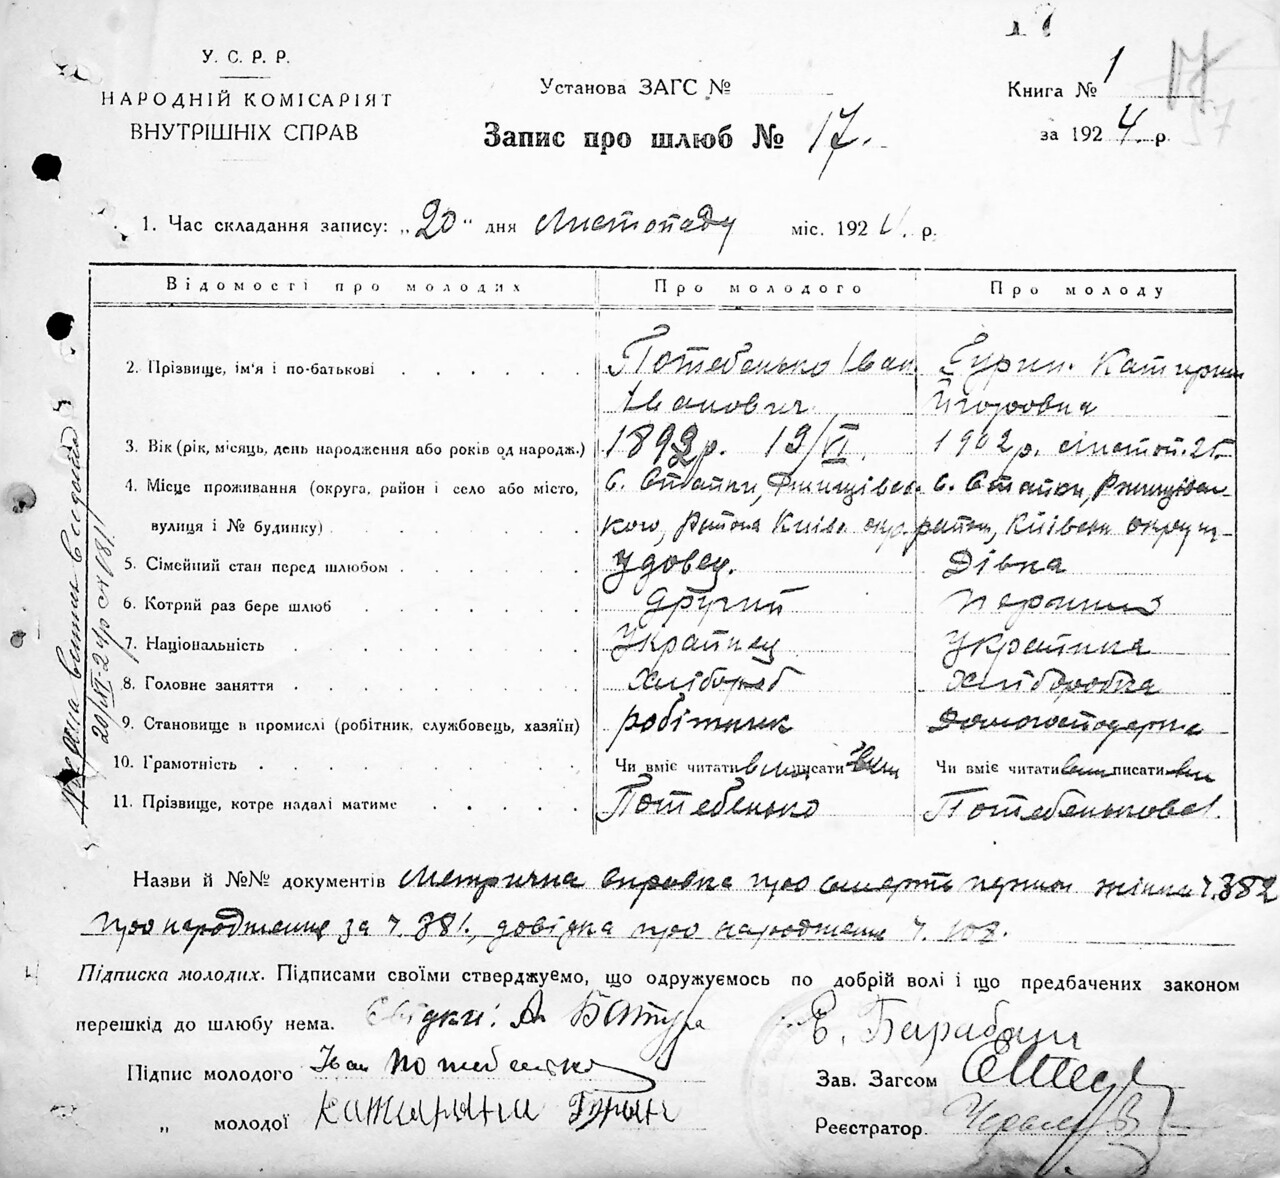 У. С. Р. Р.
НАРОДНІЙ КОМІСАРІЯТ
ВНУТРІШНІХ СПРАВ
Установа ЗАГС №
Запис про шлюб № 17.
Книга № 1
за 1924 р.
1. Час складання запису: „20" дня Листопаду міс. 1924. р.
Відомості про молодих Про молодого Про молоду
2. Прізвище, ім'я і по-батькові Потебенько Іван Гурин. Катерин
Іванович Йгоровна
3. Вік (рік, місяць, день народження або років од народж.) 1892 р. 19/VI. 1902 р. листоп. 25
4. Місце проживання (округа, район і село або місто, с. Стайки, Ржищівсь- с. Стайки, Ржищівсь-
вулиця і № будинку) кого, района Київс. окр. район, Київськ округи
5. Сімейний стан перед шлюбом Удовец. Дівка
6. Котрий раз бере шлюб другий першы
7. Національність Украйнец Украйнка
8. Головне заняття Хлібороб Хліборобка
9. Становище в промислі (робітник, службовець, хазяїн) робітник домогосподарка
10. Грамотність Чи вміє читати вміє писати вміє Чи вміє читати вміє писати вміє
11. Прізвище, котре надалі матиме Потебенько Потебенькова.
Назви й №№ документів Метрична справка про смерть першої жінки ч. 382
про народження за ч. 381, довідка про народження ч. 108.
Підписка молодих. Підписами своїми стверджуємо, що одружуємось по добрій волі і що предбачених законом
перешкід до шлюбу нема. Свідки: А. Батура Е. Барабаш
Підпис молодого Іван Потебенько Зав. Загсом
„ молодої Катирина Гурин Реєстратор
20/XI-24р